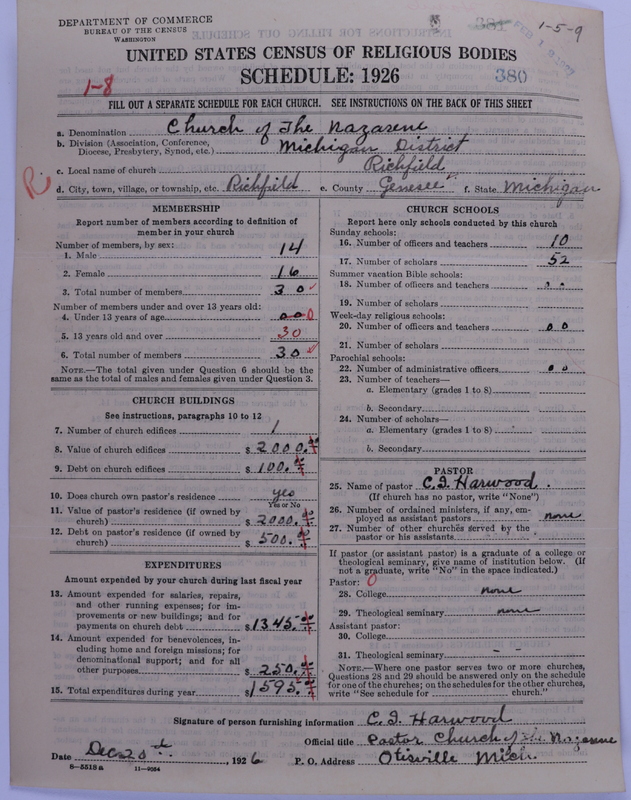 DEPARTMENT OF COMMERCE
BUREAU OF THE CENSUS
WASHINGTON
381
1-5-9
UNITED STATES CENSUS OF RELIGIOUS BODIES
SCHEDULE: 1926
380
1-8
FILL OUT A SEPARATE SCHEDULE FOR EACH CHURCH. SEE INSTRUCTIONS ON THE BACK OF THIS SHEET
a. Denomination Church of The Nazarene
b. Division (Association, Conference, Diocese, Presbytery, Synod, etc.) Michigan District
c. Local name of church Richfield
R.
d. City, town, village, or township, etc. Richfield e. County Genesee f. State Michigan
MEMBERSHIP
Report number of members according to definition of
member in your church
Number of members, by sex:
1. Male 14
2. Female 16
3. Total number of members 30
Number of members under and over 13 years old:
4. Under 13 years of age 0
5. 13 years old and over 30
6. Total number of members 30
NOTE.—The total given under Question 6 should be
same as the total of males and females given under Question 3.
CHURCH BUILDINGS
See instructions, paragraphs 10 to 12
7. Number of church edifices 1
8. Value of church edifices $2000.00
9. Debt on church edifices $100.00
10. Does church own pastor's residence yes
Yes or No
11. Value of pastor's residence (if owned by
church) $2000.00
12. Debt on pastor's residence (if owned by
church) $500.00
EXPENDITURES
Amount expended by your church during last fiscal year
13. Amount expended for salaries, repairs,
and other running expenses; for im-
provements or new buildings; and for
payments on church debt $1345.00
14. Amount expended for benevolences, in-
cluding home and foreign missions; for
denominational support; and for all
other purposes $250.00
15. Total expenditures during year $1595.00
CHURCH SCHOOLS
Report here only schools conducted by this church
Sunday schools:
16. Number of officers and teachers 10
17. Number of scholars 52
Summer vacation Bible schools:
18. Number of officers and teachers
19. Number of scholars
Week-day religious schools:
20. Number of officers and teachers 0 0
21. Number of scholars
Parochial schools:
22. Number of administrative officers 0 0
23. Number of teachers—
a. Elementary (grades 1 to 8)
b. Secondary
24. Number of scholars—
a. Elementary (grades 1 to 8)
b. Secondary
PASTOR
25. Name of pastor C. I. Harwood.
(If church has no pastor, write "None")
26. Number of ordained ministers, if any, em-
ployed as assistant pastors none
27. Number of other churches served by the
pastor or his assistants
If pastor (or assistant pastor) is a graduate of a college or
theological seminary, give name of institution below. (If
not a graduate, write "No" in the space indicated.)
Pastor: 0
28. College none
29. Theological seminary none
Assistant pastor:
30. College
31. Theological seminary – –
NOTE.—Where one pastor serves two or more churches,
Questions 28 and 29 should be answered only on the schedule
for one of the churches; on the schedules for the other churches,
write "See schedule for church."
Signature of person furnishing information C. I. Harwood
Official title Pastor Church of the Nazarene
Date Dec 20th, 1926 P. O. Address Otisville Mich.
8-5518a 11-9064